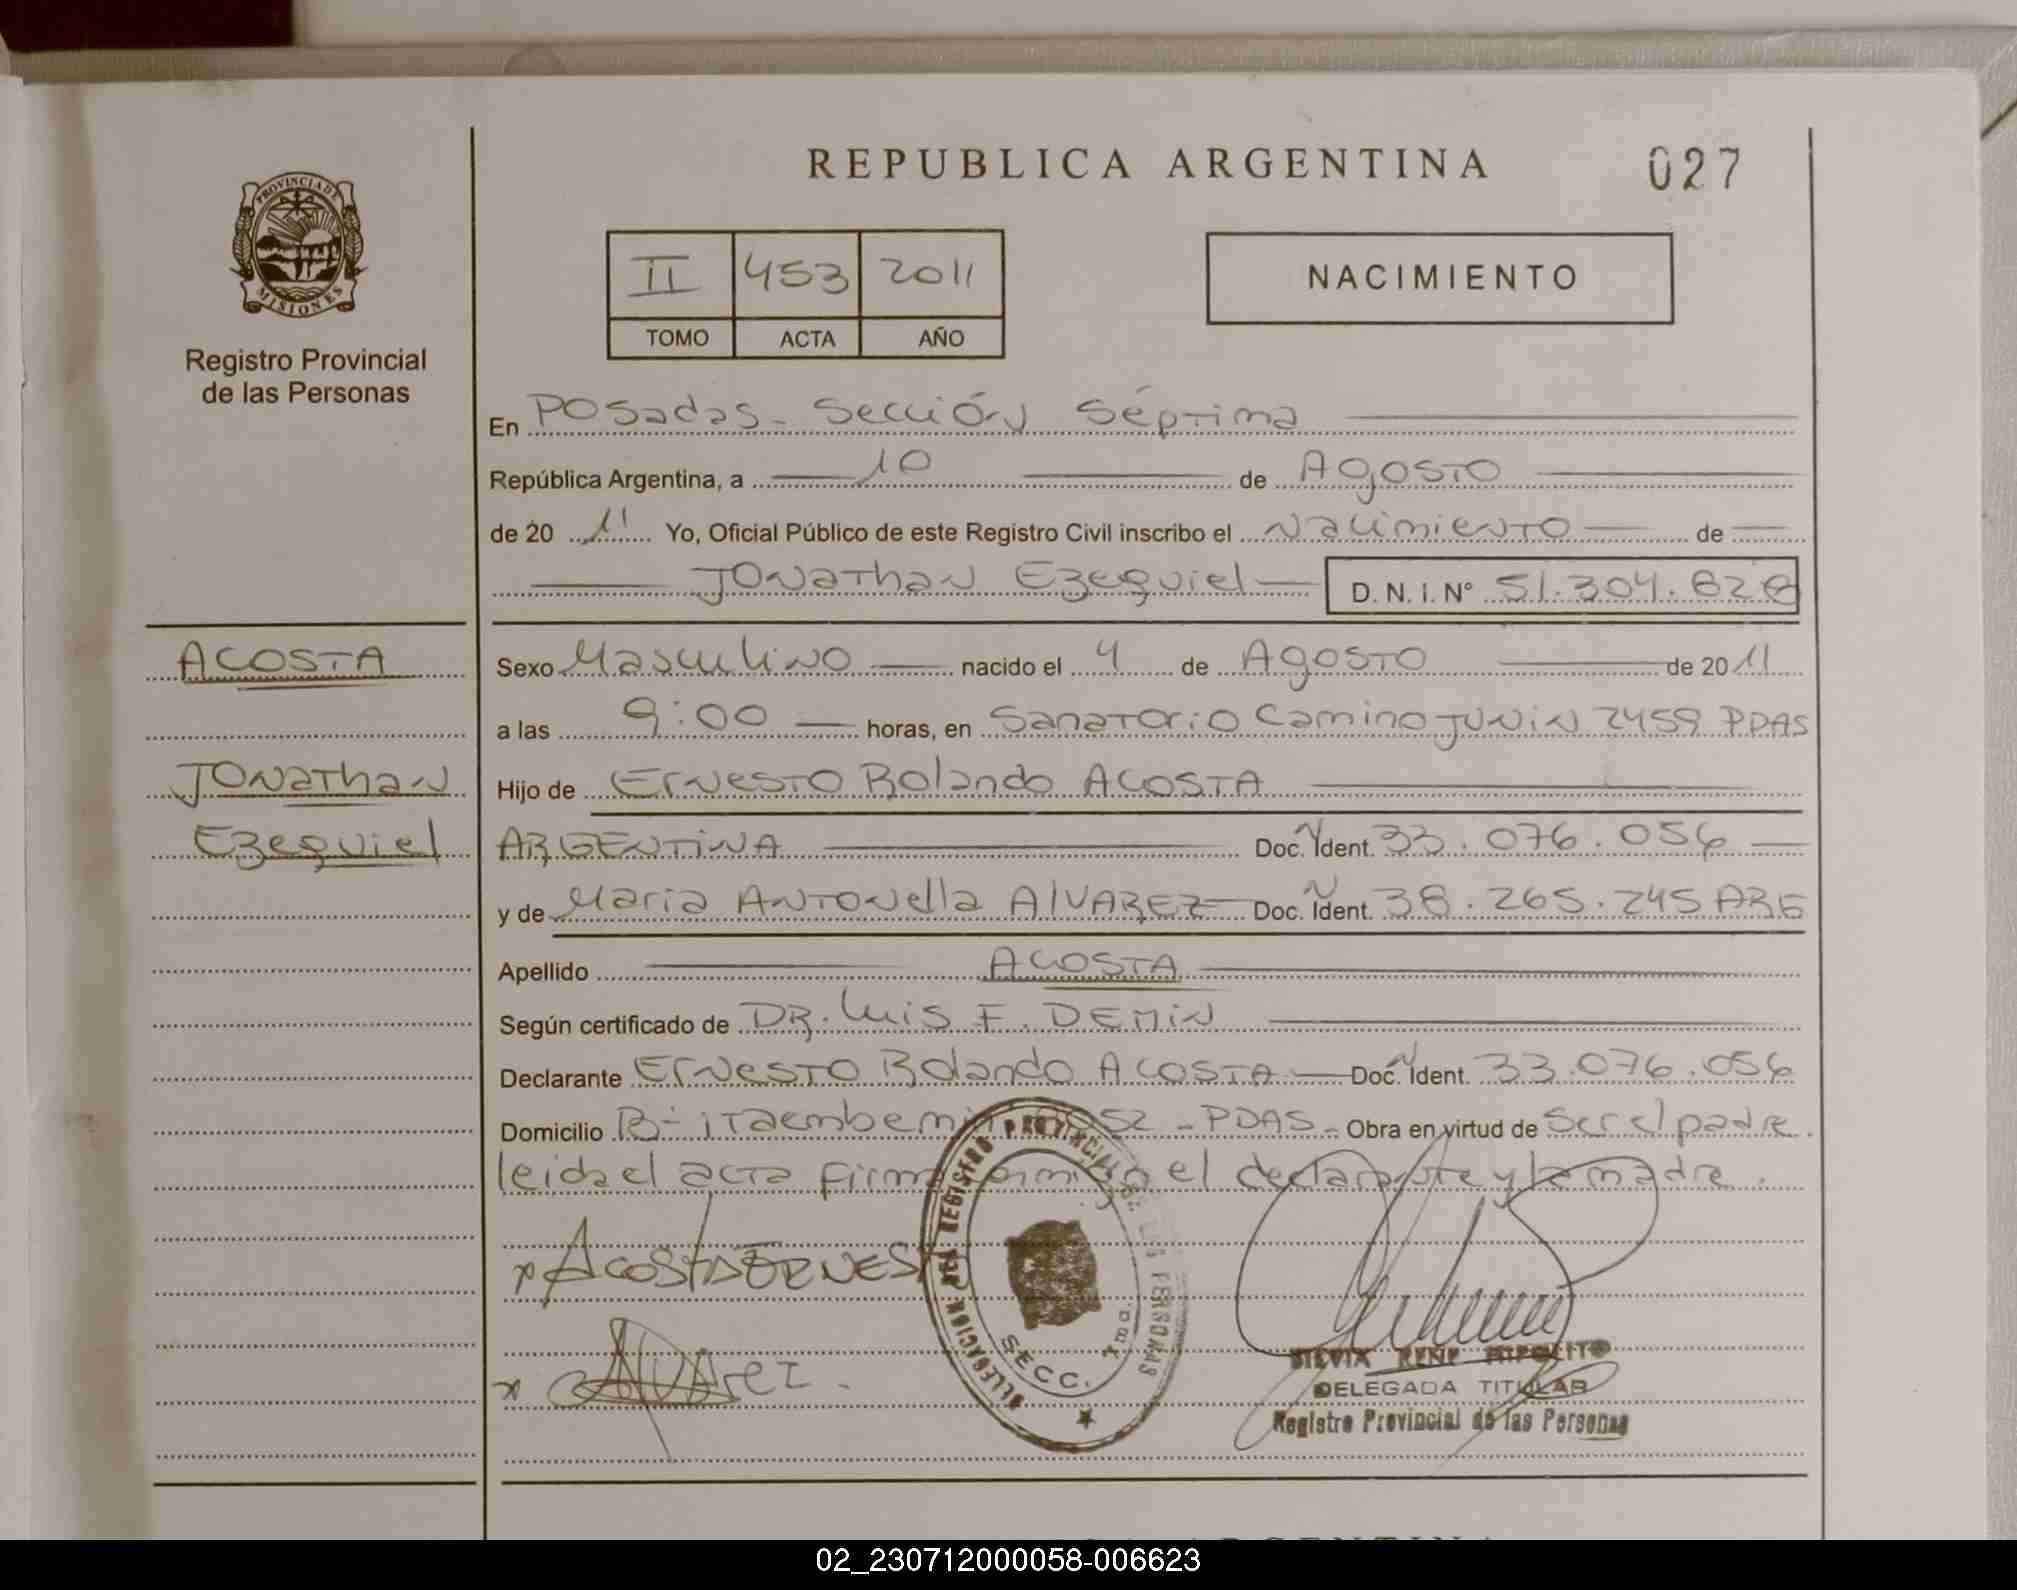 REPUBLICA ARGENTINA
027
PROVINCIA DE
MISIONES
Registro Provincial
de las Personas
II 453 2011
TOMO ACTA AÑO
NACIMIENTO
En Posadas - Sección Séptima
República Argentina, a 10 de Agosto
de 20 11 Yo, Oficial Público de este Registro Civil inscribo el Nacimiento de
Jonathan Ezequiel D. N. I. N° 51.304.828
ACOSTA
Jonathan
Ezequiel
Sexo Masculino nacido el 4 de Agosto de 2011
a las 9:00 horas, en Sanatorio Camino Junin 2459 PDAS
Hijo de Ernesto Rolando ACOSTA
ARGENTINA Doc. N Ident. 33.076.056
y de Maria Antonella ALVAREZ Doc. N Ident. 38.265.245 ARG
Apellido ACOSTA
Según certificado de DR. Luis F. DEMIN
Declarante Ernesto Rolando ACOSTA Doc. N Ident. 33.076.056
Domicilio B° itaembe mini 52 - PDAS - Obra en virtud de ser el padre
leida el acta firma el declarante y la madre.
x ACOSTA ERNES
x Alvarez.
DELEGACION DEL REGISTRO PROVINCIAL DE LAS PERSONAS
SECC. 7ma.
SILVIA RENE HIPOLITO
DELEGADA TITULAR
Registro Provincial de las Personas
02_230712000058-006623